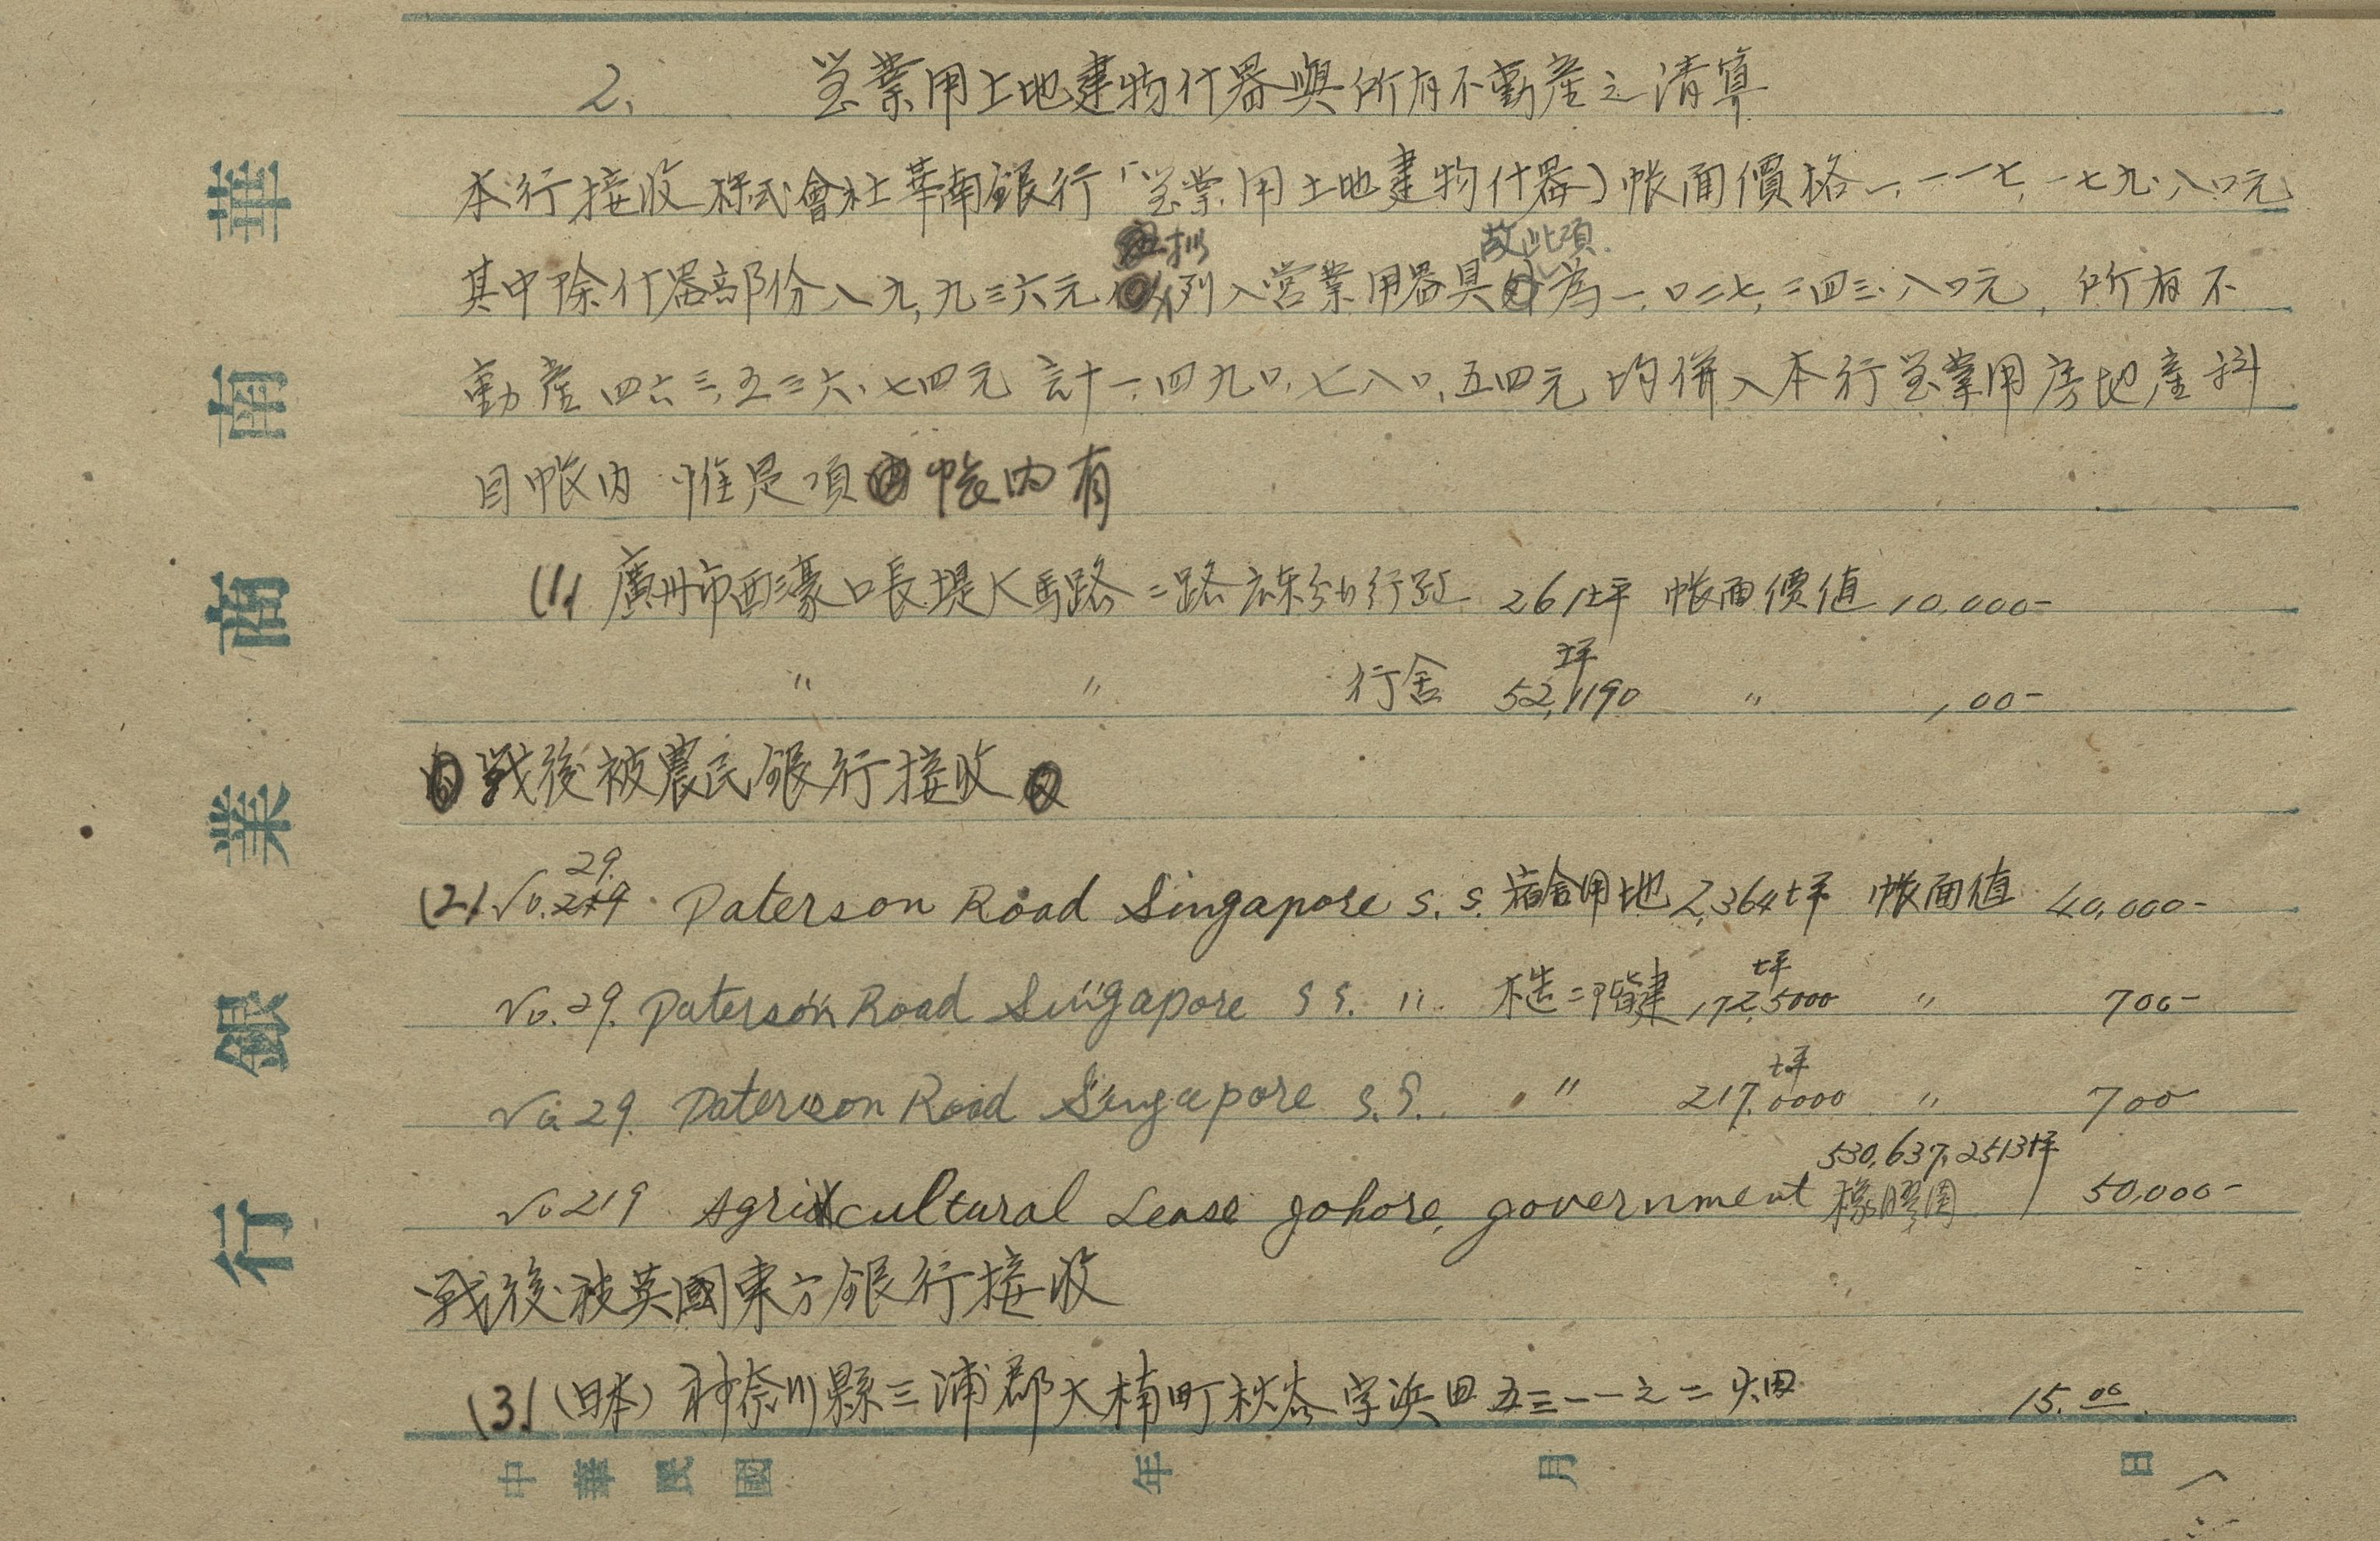 2、 営業用土地建物什器與所有不動産之清算
本行接收株式會社華南銀行「営業用土地建物什器」帳面價格一、一一七、一七九.八〇元
故此項
其中除什器部份八九,九三六元列入営業用器具為一、〇二七、二四三.八〇元,所有不
動産四六三、五三六、七四元計一、四九〇、七八〇、五四元均併入本行営業用房地産科
目帳內 惟是項帳內有
(1) 廣州市西濠口長堤大馬路二路広東分行改 261坪 帳面價值 10,000-
〃 〃 行舍 52,1190坪 〃 ,00-
戰後被農民銀行接收
(2) No. 29. Paterson Road Singapore S. S. 宿舍用地 2,364坪 帳面値 40,000-
No. 29. Paterson Road Singapore S S. 〃 木造二階建 172,5000坪 〃 700-
No 29. Paterson Road Singapore S.S. 〃 217.0000坪 〃 700
No 219 Agricultural Lease Johore, government 橡膠園 530,637,2513坪 50,000-
戰後被英國東方銀行接收
(3) (日本) 神奈川縣三浦郡大楠町秋谷字浜田五三一一之二 畑 15.00
華南商業銀行
中華民國 年 月 日